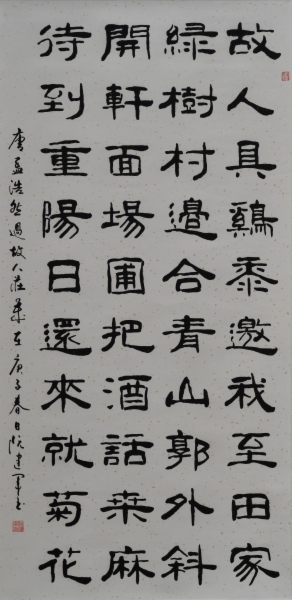 故人具鷄黍邀我至田家
綠樹村邊合青山郭外斜
開軒面場圃把酒話桒麻
待到重陽日還來就菊花
唐孟浩然過故人莊歲在庚子春日阮建軍書